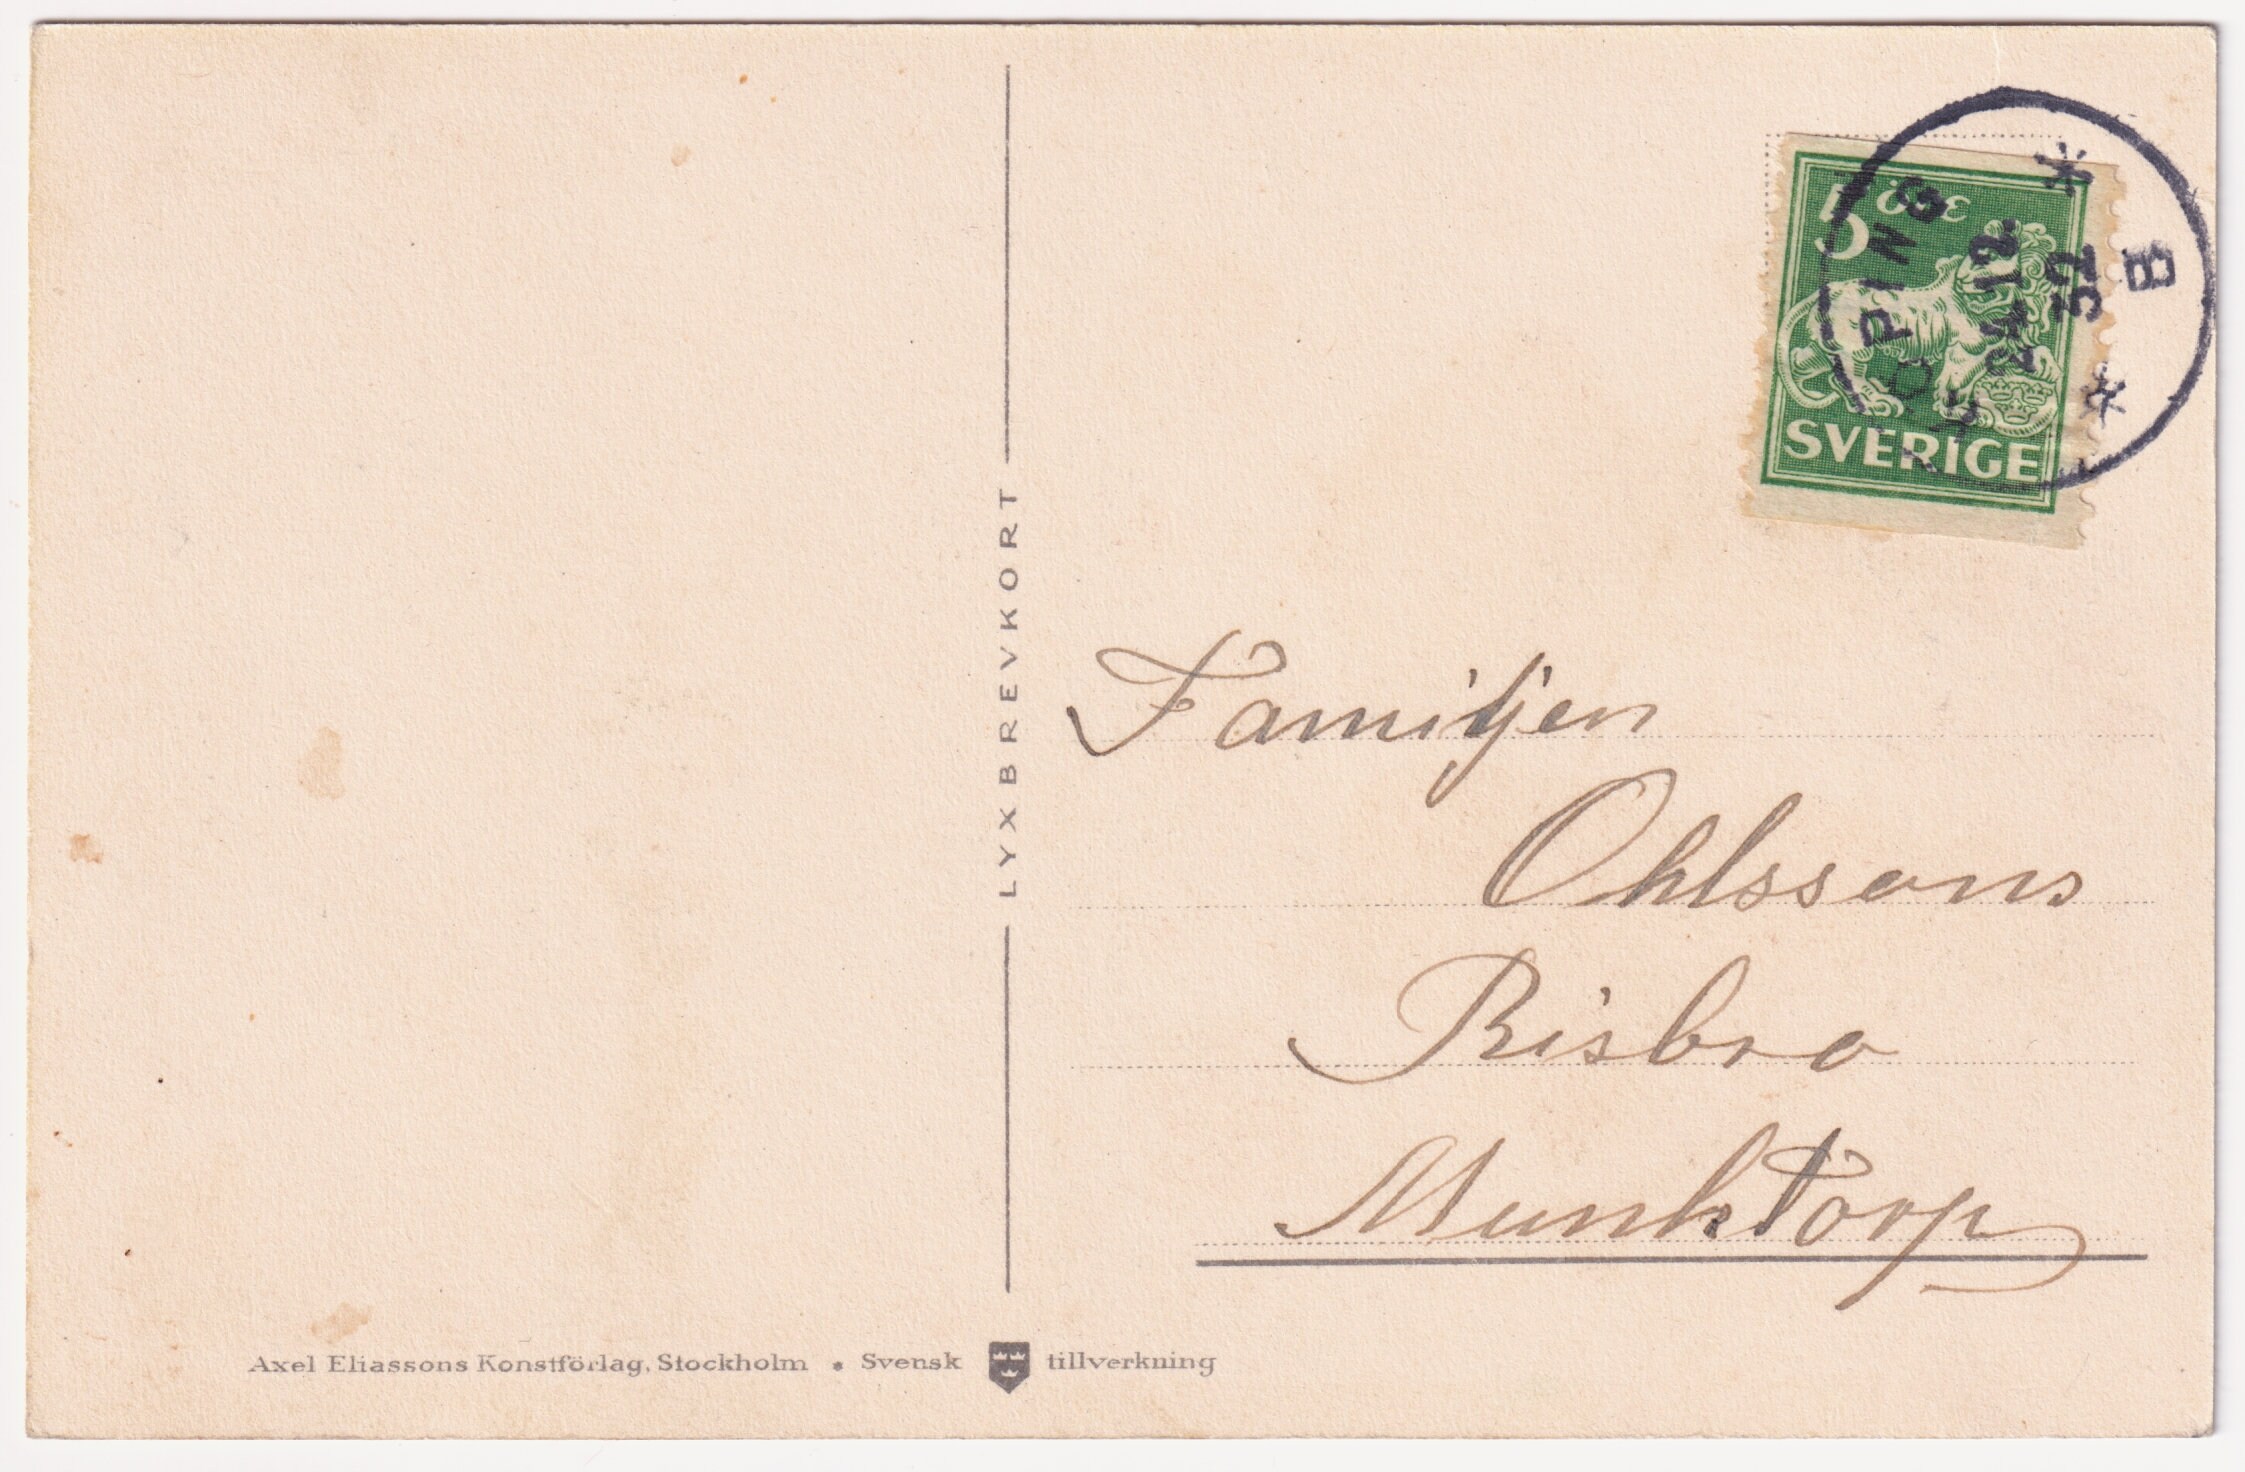 5 ÖRE
SVERIGE
KÖPING
B
LYXBREVKORT
Familjen
Ohlssons
Risbro
Munktorp
Axel Eliassons Konstförlag, Stockholm • Svensk tillverkning